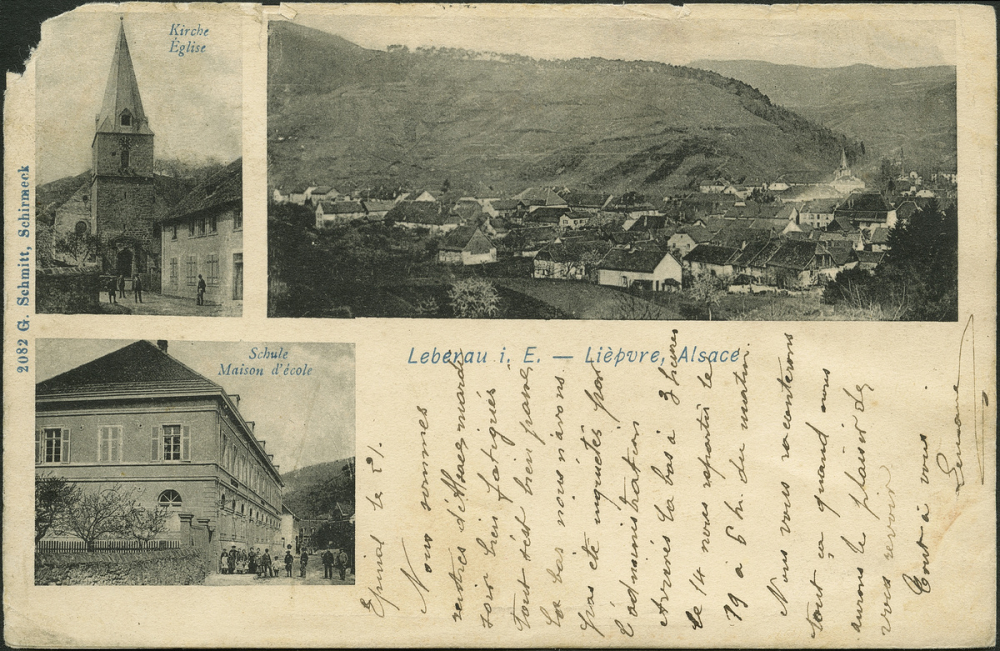 Kirche
Église
2082 G. Schmitt, Schirmeck
Schule
Maison d'école
Leberau i. E. — Lièpvre, Alsace
Epinal le 21.
Nous sommes
rentrés d'Alsace mardi
soir bien fatigués
tout s'est bien passé,
là bas nous n'avons
pas été inquiétés par
l'administration
Arrivés la bas à 3 heures
le 14 nous repartis le
19 à 6 h. du matin.
Nous vous raconterons
tout ça quand nous
aurons le plaisir de
vous revoir
Tout à vous